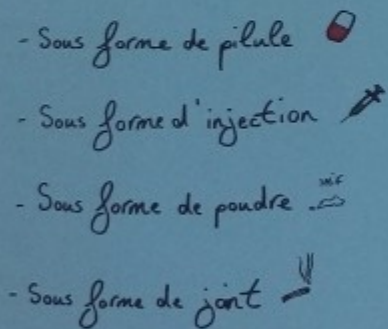 - Sous forme de pilule
- Sous forme d'injection
- Sous forme de poudre snif
- Sous forme de joint